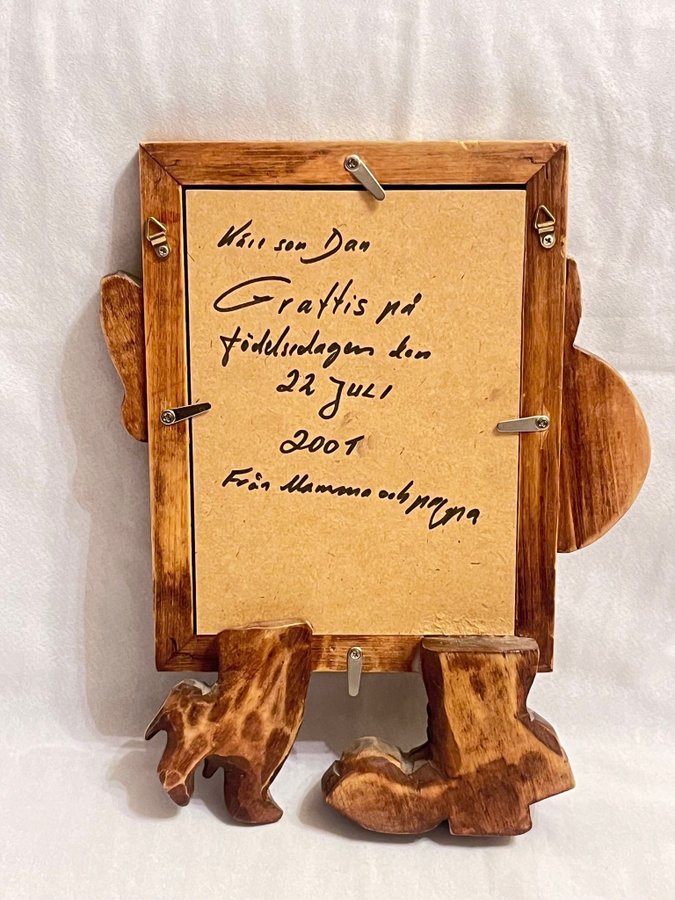 Vår son Dan
Grattis på
födelsedagen den
22 Juli
2001
Från Mamma och pappa